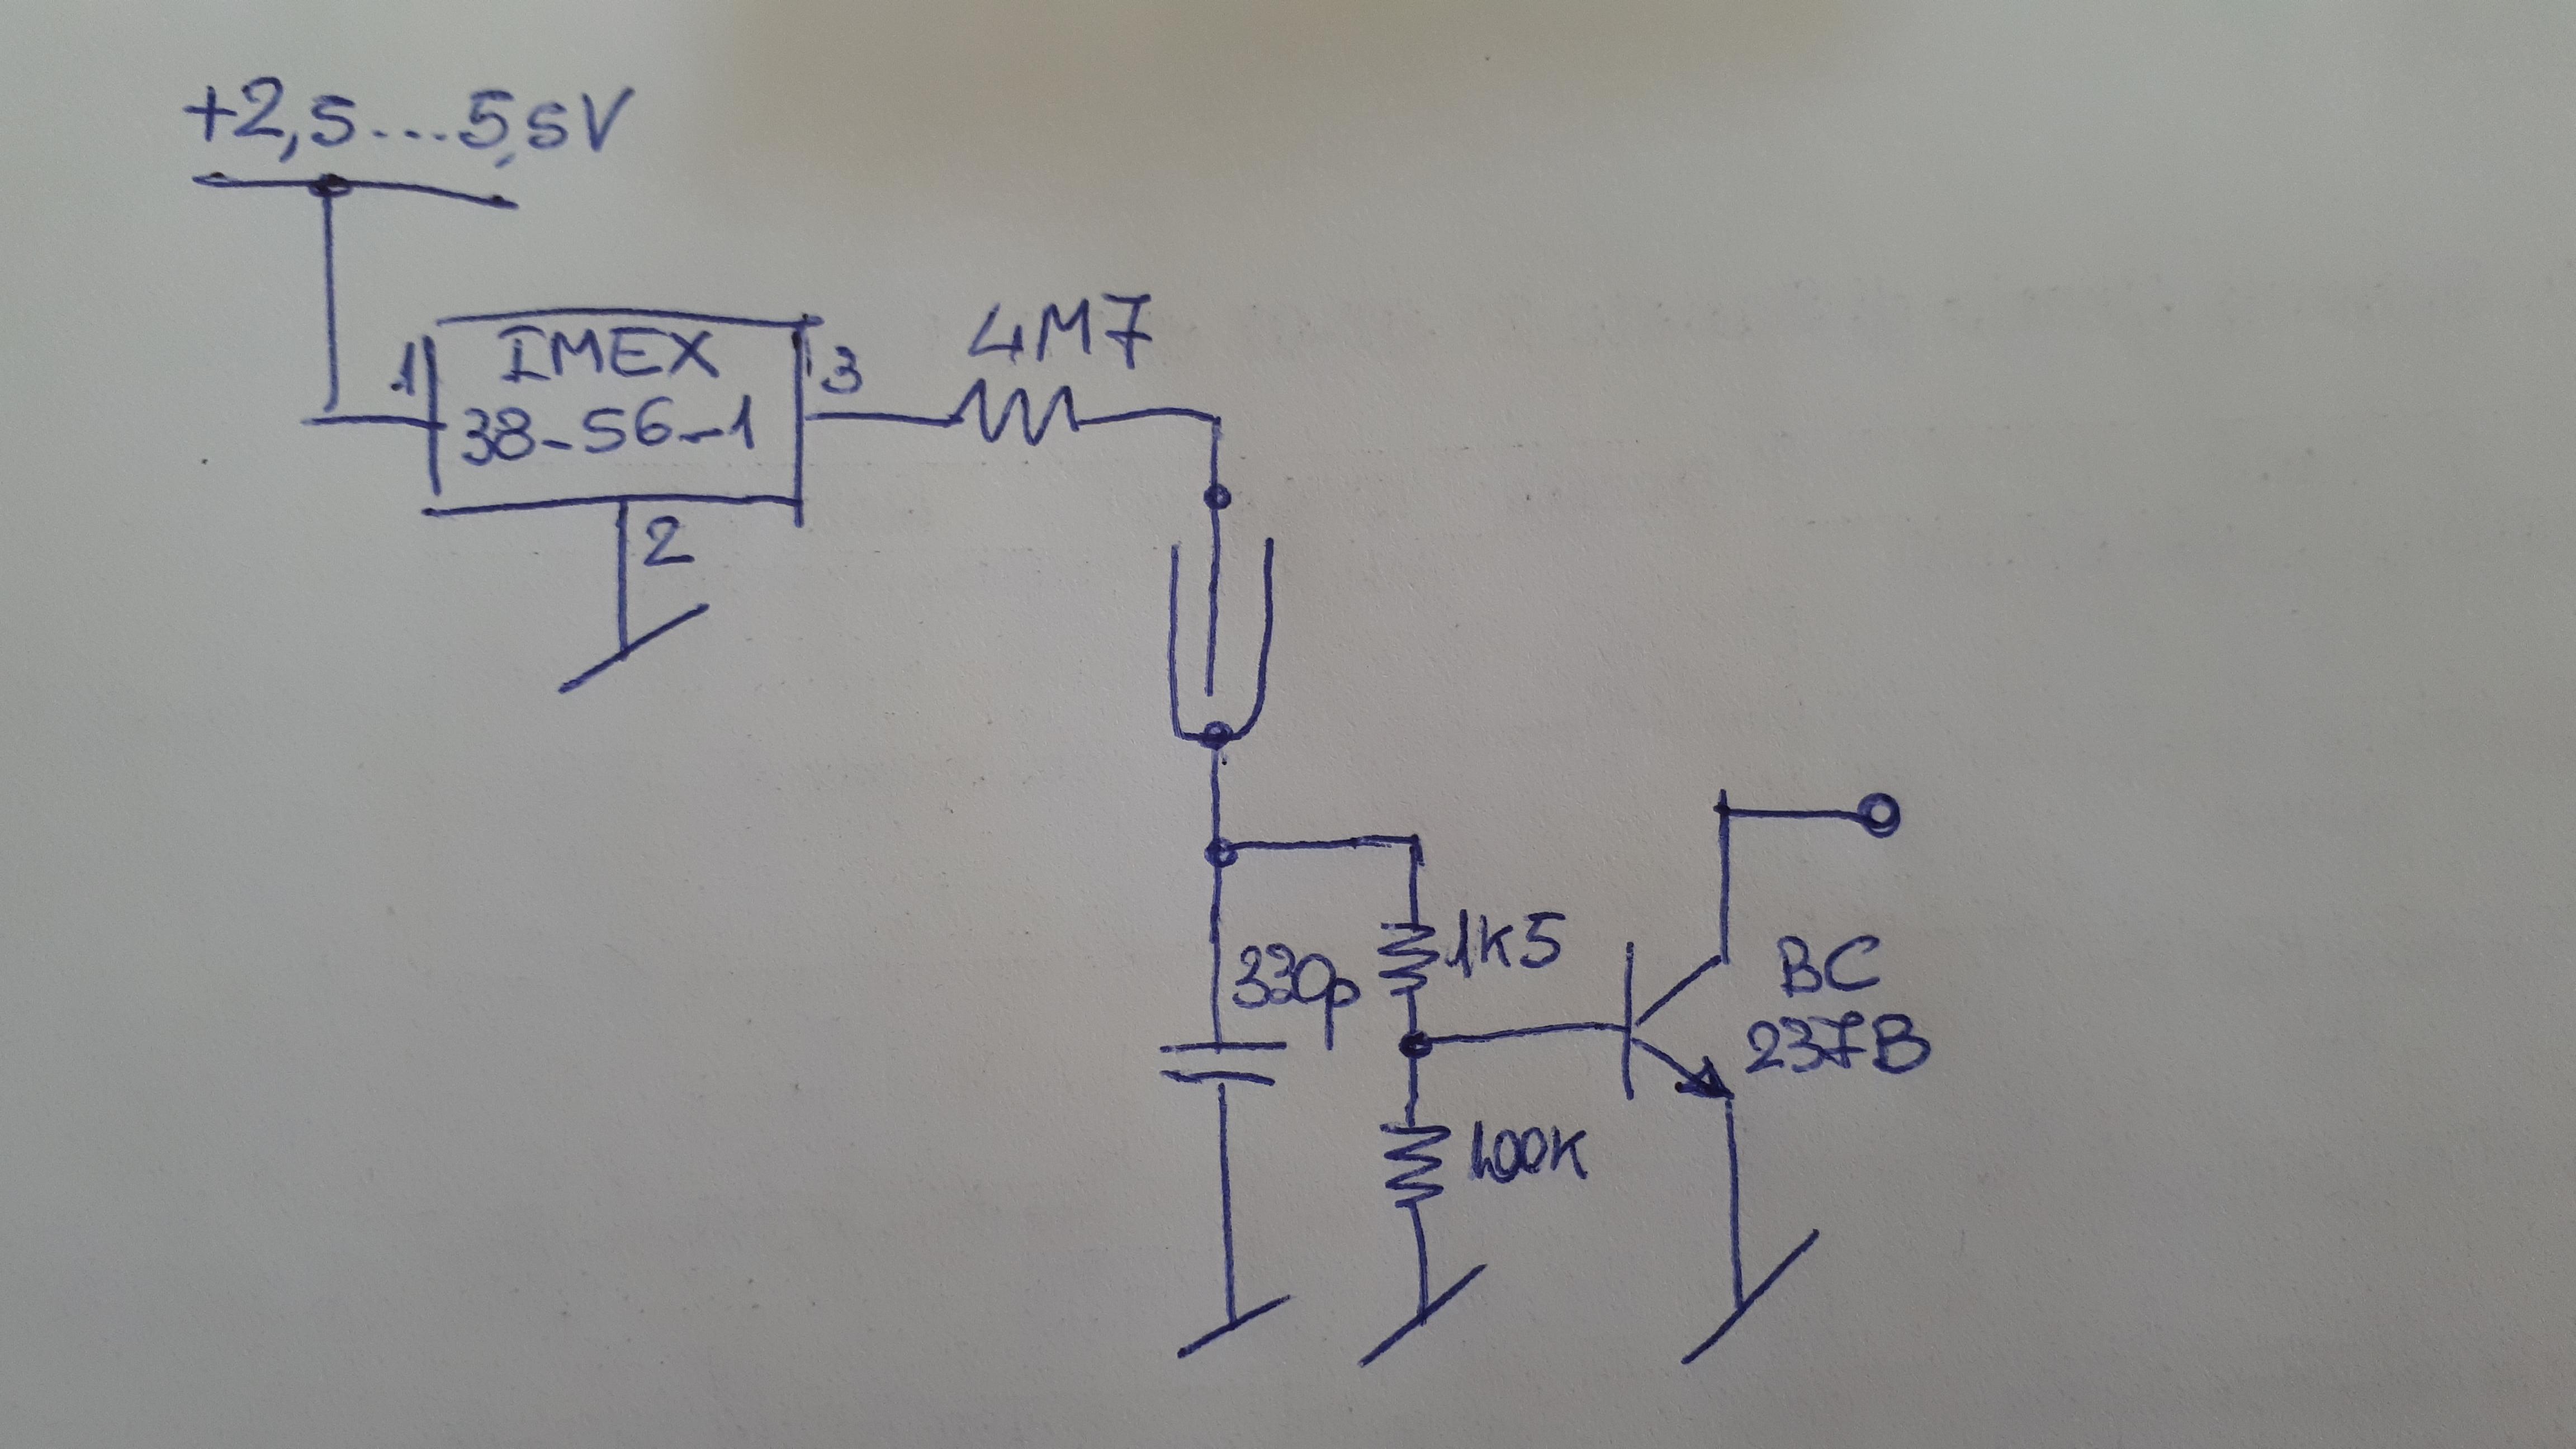 +2,5...5,5V
4M7
1
IMEX
3
38-56-1
2
330p
1K5
BC
237B
100K